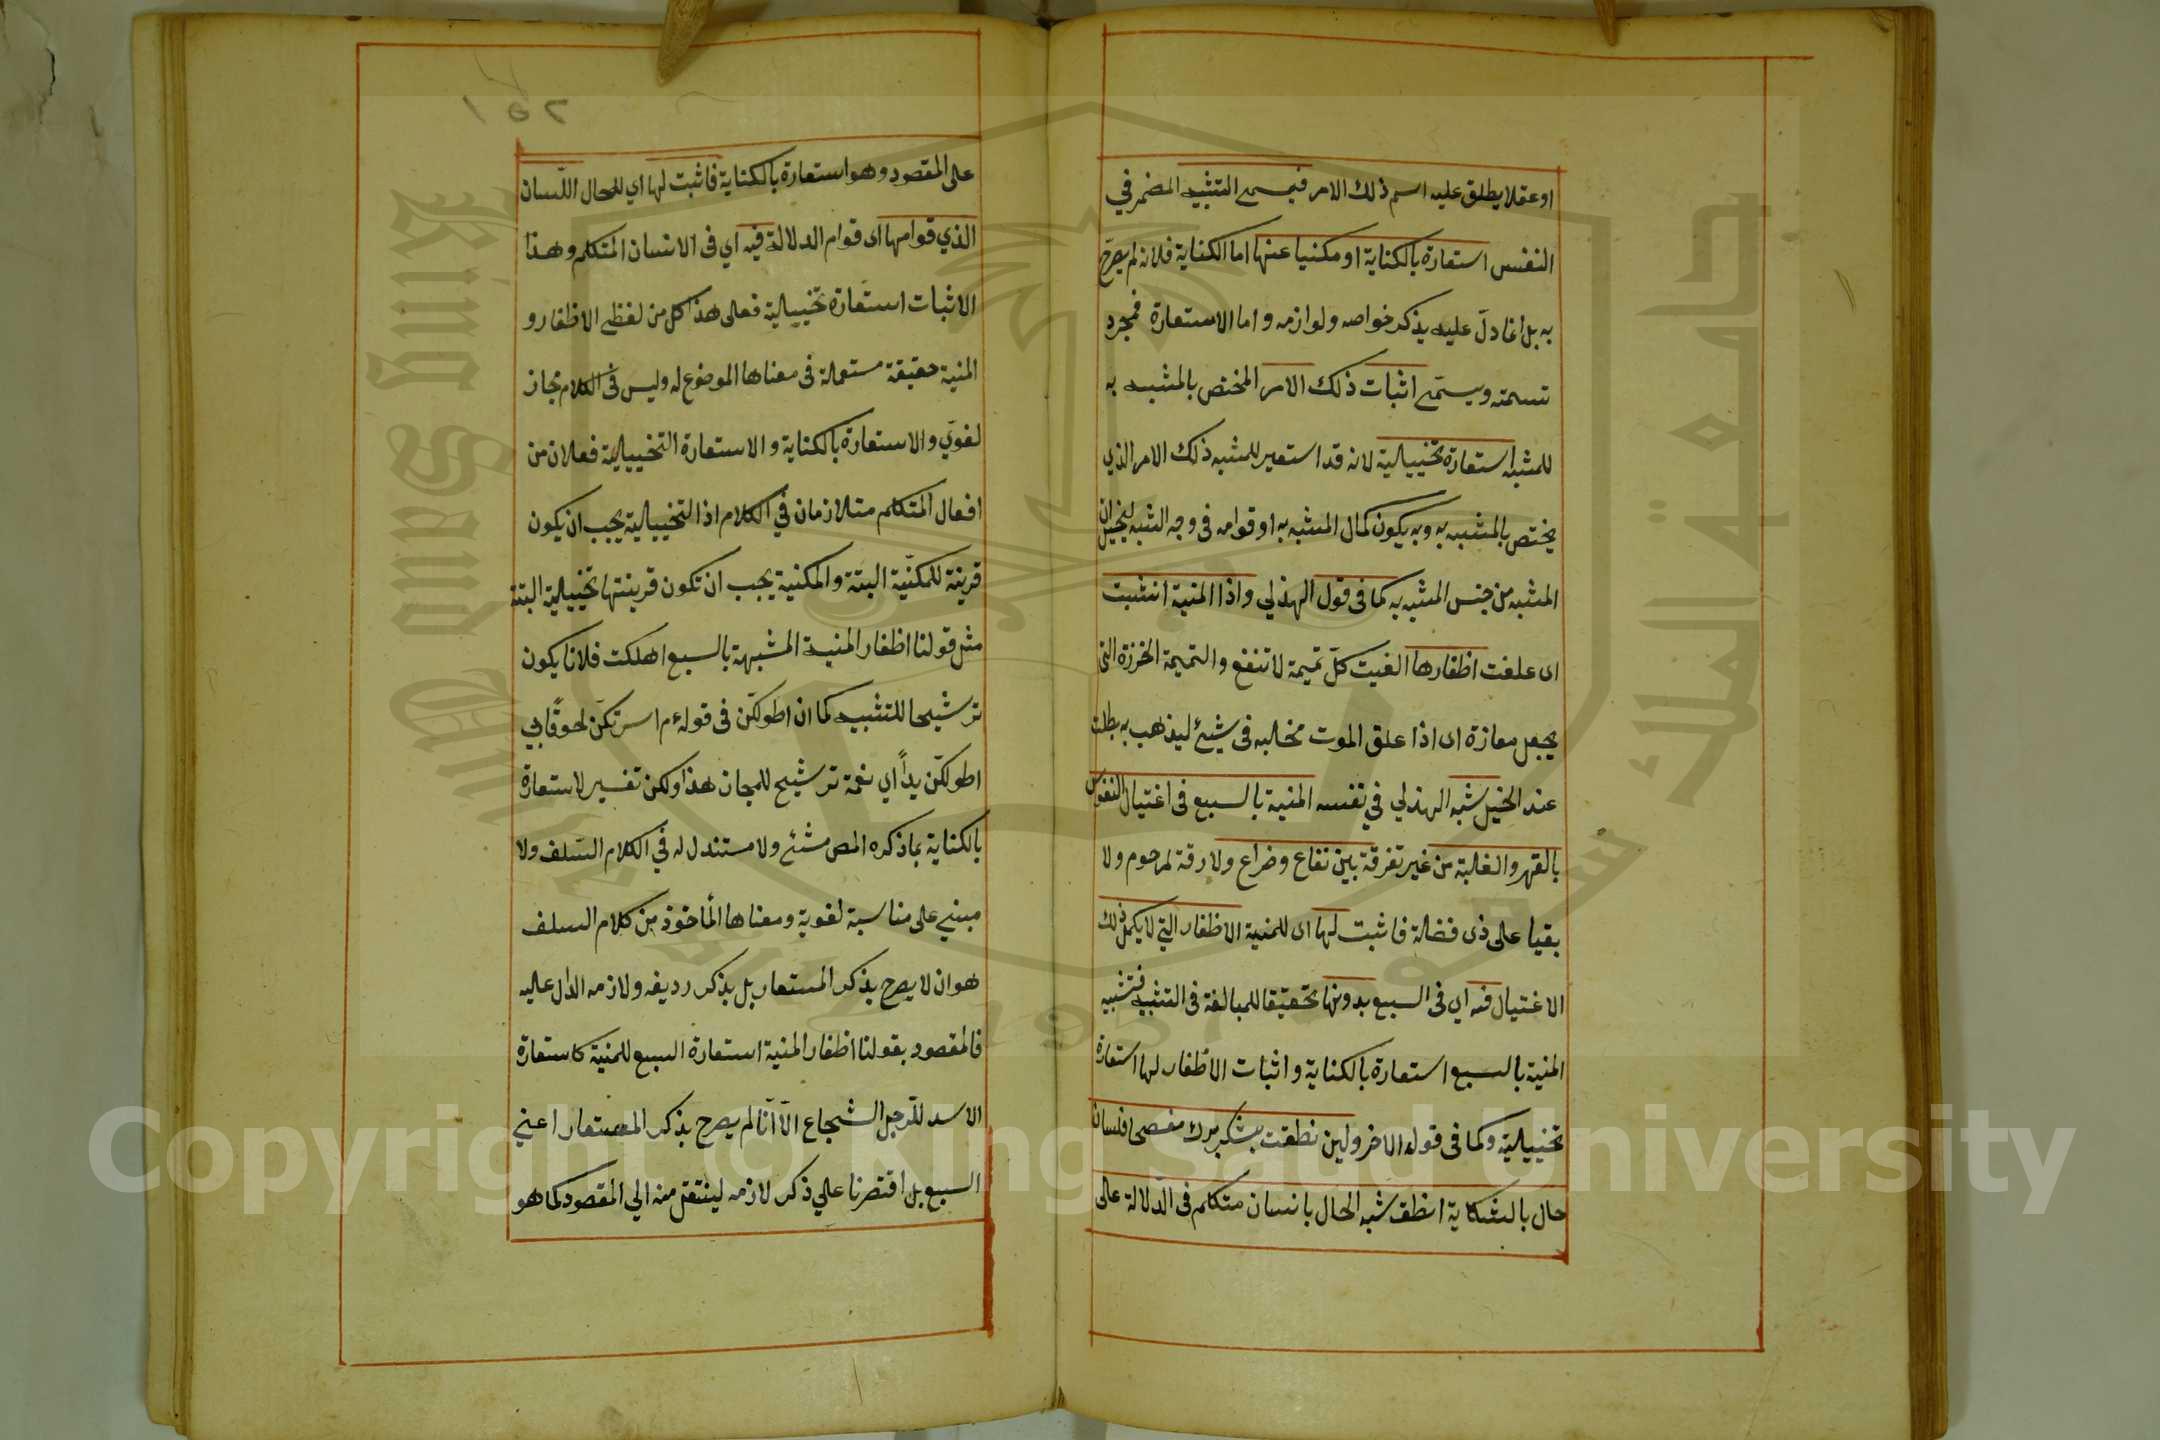 او عقلا يطلق عليه اسم ذلك الامر فيسمى التشبيه المضمر في
النفس استعارة بالكناية او مكنيا عنها اما الكناية فلانه لم يصرح
به بل انما دلّ عليه بذكر خواصه ولوازمه واما الاستعارة فمجرد
تسمته ويسمّى اثبات ذلك الامر المختص بالمشبه به
للمشبه استعارة تخييلية لانه قد استعير للمشبه ذلك الامر الذي
يختص بالمشبه به وبه يكون كمال المشبه به او قوامه في وجه الشبه ليخيل ان
المشبه من جنس المشبه به كما في قول الهذلي واذا المنية انشبت
اى علقت اظفارها الفيت كلّ تميمة لا تنفع والتميمة الخرزة التى
يجعل معاذة اى اذا علق الموت مخالبه فى شيئ ليذهب به بطلت
عند الحيل شبه الهذلي في نفسه المنية بالسبع فى اغتيال النفوس
بالقهر والغلبة من غير تفرقة بين نفاع وضراع ولا رقة لمرحوم ولا
بقيا على ذى فضلة فاثبت لها اى للمنية الاظفار التي لا يكمل ذلك
الاغتيال فيه اي فى السبع بدونها تحقيقا للمبالغة فى التشبيه فتشبيه
المنية بالسبع استعارة بالكناية واثبات الاظفار لها استعارة
تخييلية وكما فى قوله الاخر ولين نطقت بشكر برك مفصحا فلسان
حال بالشكاية انطق شبه الحال بانسان متكلم فى الدّلالة على
١٥٢
على المقصود وهو استعارة بالكناية فاثبت لها اي للحال اللّسان
الذي قوامها اى قوام الدلالة فيه اي فى الانسان المتكلم وهذا
الاثبات استعارة تخييلية فعلى هذا كل من لفظى الاظفار و
المنية حقيقة مستعملة فى معناها الموضوع له وليس فى الكلام مجاز
لغويّ والاستعارة بالكناية والاستعارة التخييلية فعلان من
افعال المتكلم متلازمان في الكلام اذ التخييلية يجب ان يكون
قرينة للمكنّية البتة والمكنية يجب ان تكون قرينتها تخييلية البتة
مثل قولنا اظفار المنية المشبهة بالسبع اهلكت فلانا يكون
ترشيحا للتشبيه كما ان اطولكنّ فى قوله ٤م اسرتكنّ لحوقًا بي
اطولكنّ يداً اي نعمة ترشيح للمجاز هذا ولكن تفسير لاستعارة
بالكناية بما ذكره المص مشئ ولا مستند له في الكلام السّلف ولا
مبنى على مناسبة لغوية ومعناها المأخوذ من كلام السلف
هو ان لا يصرح بذكر المستعار بل بذكر رديفه ولازمه الدال عليه
فالمقصود بقولنا اظفار المنية استعارة السبع للمنية كاستعارة
الاسد للرّجل الشجاع الّا انّا لم يصرح بذكر المستعار اعني
السبع بل اقتصرنا علي ذكر لازمه لينتقل منه الي المقصود كما هو
جامعة الملك سعود
King Saud University
1957
Copyright © King Saud University